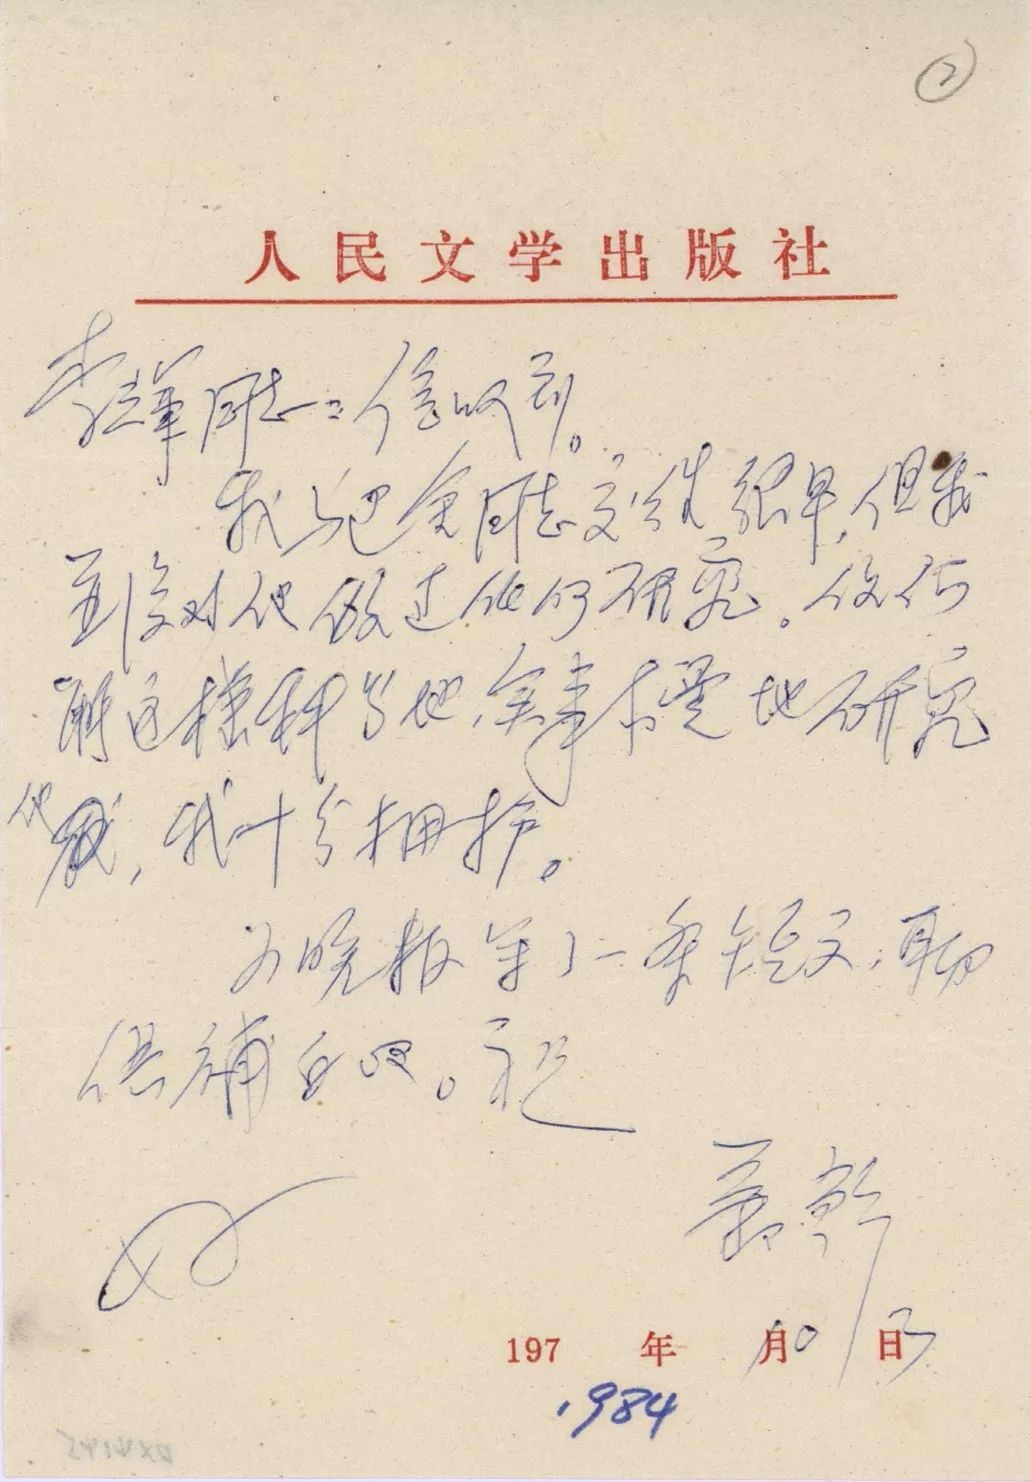 ②
人民文学出版社
李辉同志：信收到。
我与巴金同志交往很早，但我
並没对他做过任何研究。你们
能这样科学地、实事求是地研究
他，我十分拥护。
为晚报写了一条短文，聊
供补白吧。祝
好
萧乾
197 年 月 日
10/3
1984